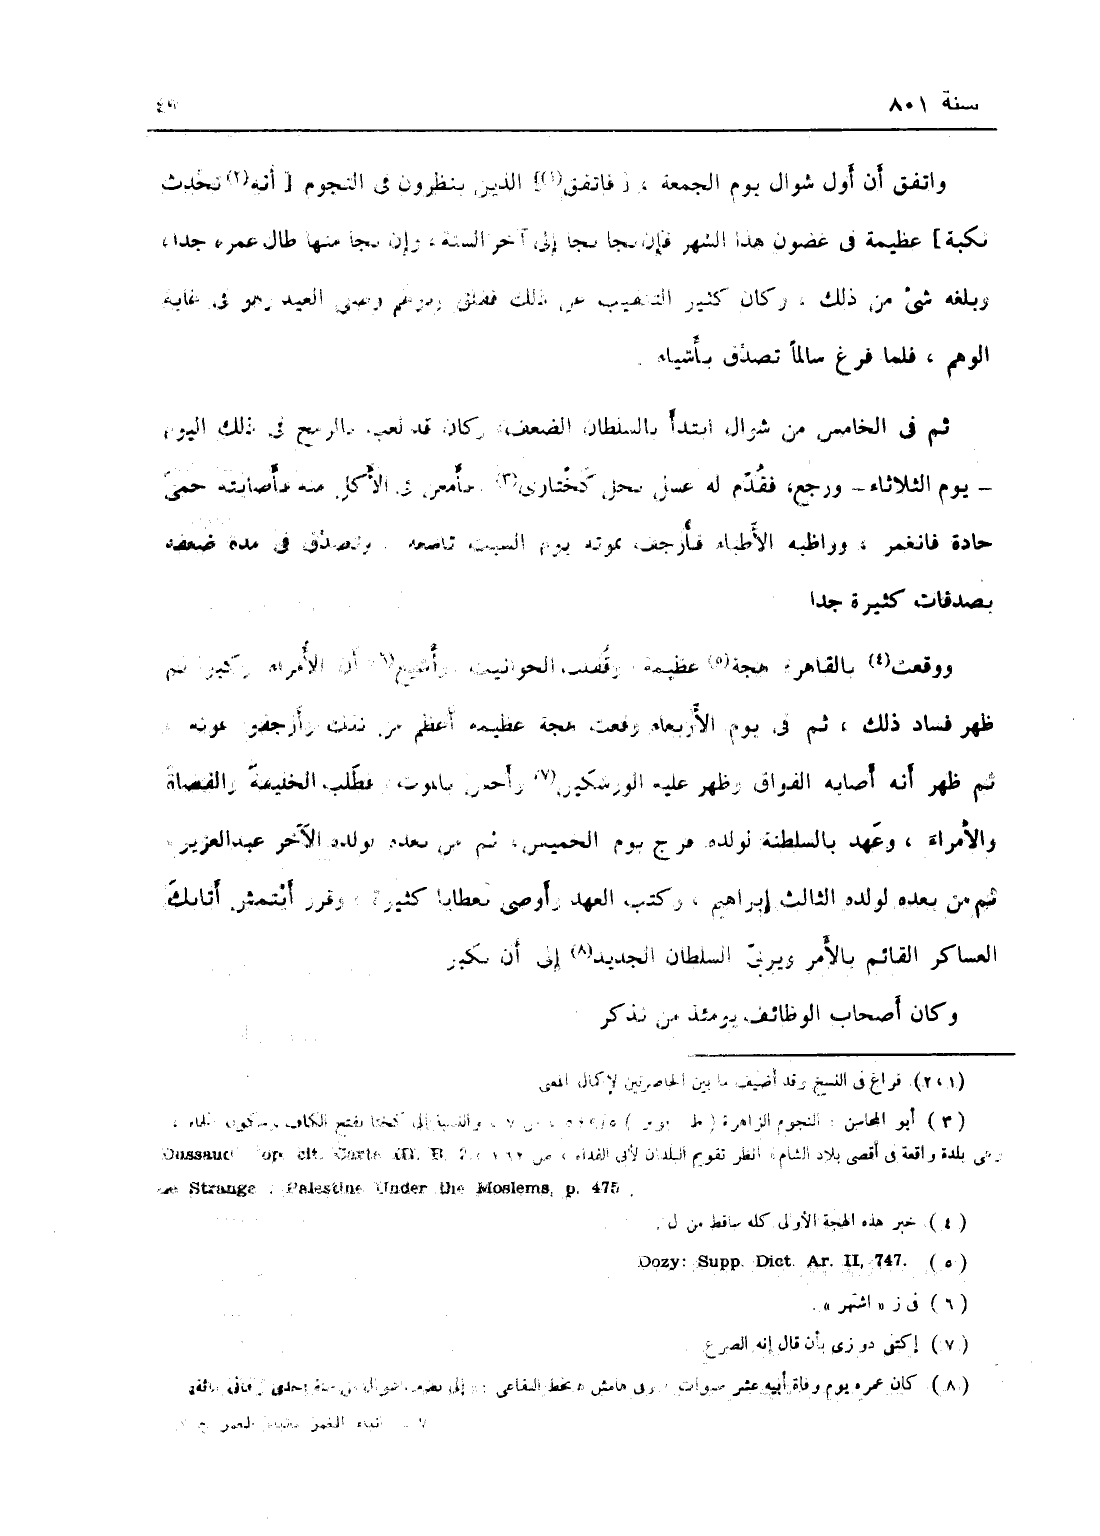 سنة ٨٠١
واتفق أن أول شوال يوم الجمعة ، [ فاتفق(١)] الذين ينظرون فى النجوم [ أنه(٢) تحدث
نكبة ] عظيمة فى غضون هذا الشهر فإن نجا نجا إلى آخر السنة ، وإن نجا منها طال عمره جدا ،
وبلغه شئ من ذلك ، وكان كثير التنقيب عن ذلك فقلق وتوهم وصلى العيد وهو فى غاية
الوهم ، فلما فرغ سالماً تصدّق بأشياء .
ثم فى الخامس من شوال ابتدأ بالسلطان الضعف، وكان قد لعب بالرمح فى ذلك اليوم
ـ يوم الثلاثاء ـ ورجع، فقُدّم له عسل نحل كَخْتاوى(٣) ، فأمعن فى الأكل منه فأصابته حمىّ
حادة فانغمر ، وواظبه الأطباء فأرجف بموته يوم السبت تاسعه ، وتصدّق فى مدة ضعفه
بصدقات كثيرة جدا
ووقعت(٤) بالقاهرة هجة(٥) عظيمة وقُفلت الحوانيت وأُشيع(٦) أن الأمراء ركبوا ثم
ظهر فساد ذلك ، ثم فى يوم الأربعاء وقعت هجة عظيمة أعظم من تلك وأرجفوا بموته ،
ثم ظهر أنه أصابه الفواق وظهر عليه الورشكين(٧) وأحس بالموت فطلب الخليفة والقضاة
والأمراء ، وعَهد بالسلطنة لولده فرج يوم الخميس، ثم من بعده لولده الآخر عبدالعزيز ،
ثم من بعده لولده الثالث إبراهيم ، وكتب العهد وأوصى بعطايا كثيرة ، وقرر أيْتمش أتابك
العساكر القائم بالأمر ويربىّ السلطان الجديد(٨) إلى أن يكبر
وكان أصحاب الوظائف يومئذ من نذكر
(٢،١) فراغ فى النسخ وقد أضيف ما بين الحاصرتين لإكمال المعنى
(٣) أبو المحاسن : النجوم الزاهرة ( ط بوبر ) ، والنسبة إلى كختا بفتح الكاف وسكون الخاء ،
وهى بلدة واقعة فى أقصى بلاد الشام، انظر تقويم البلدان لأبى الفداء ، ص Dussaud : op. cit. Carte III. B. 2.
Le Strange : Palestine Under the Moslems, p. 475 .
(٤) خبر هذه الهجة الأولى كله ساقط من ل .
(٥) Dozy: Supp. Dict. Ar. II, 747.
(٦) فى ز « اشتهر » .
(٧) إكتفى دوزى بأن قال إنه الصرع
(٨) كان عمره يوم وفاة أبيه عشر سنوات وفى هامش ه بخط البقاعى
إنباء الغمر بأبناء العمر ج